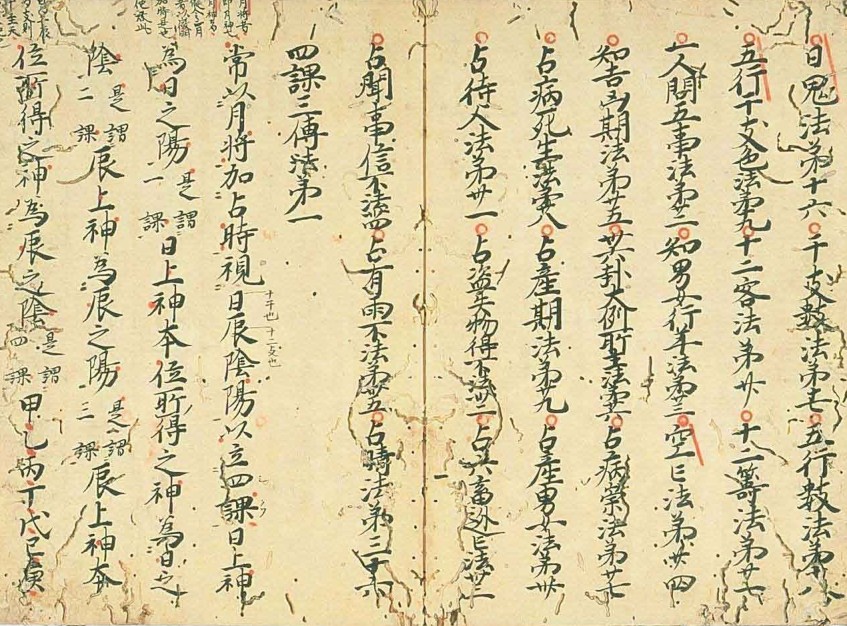 日鬼法第十六干支数法第十七五行数法第十八
五行干支色法第十九十二客法第廿十二籌法第廿一
一人問五事法第廿二知男女行年法第廿三空亡法第廿四
知吉凶期法第廿五卅六卦大例所主法第廿六占病祟法第廿七
占病死生法第廿八占産期法第廿九占産男女法第卅
占待人法第卅一占盗失物得不法卅二占六畜逃亡法卅三
占聞事信不法卅四占有雨不法第卅五占晴法第三十六
四課三傳法第一
常以月將加占時視日辰陰陽以立四課日上神
十干也 十二支也
為日之陽是謂一課日上神本位所得之神為日之
陰是謂二課辰上神為辰之陽是謂三課辰上神本
位所得之神為辰之陰是謂四課甲乙丙丁戊己庚